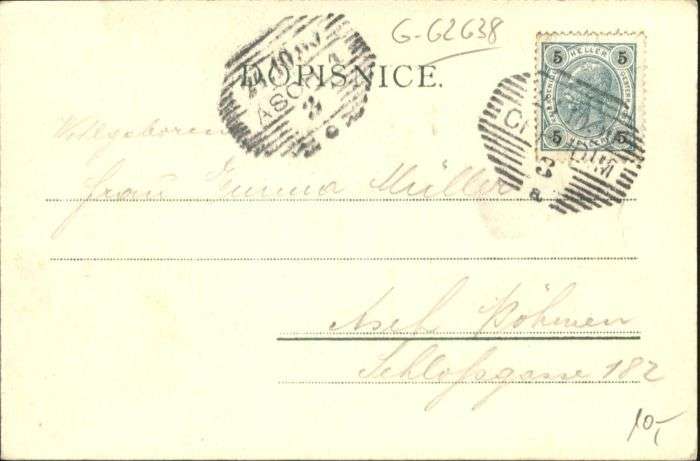 G-62638
DOPISNICE.
5 HELLER 5
5 5
ASCH
Wohlgeboren
Frau Emma Müller
Asch Böhmen
Schloßgasse 182
10,-